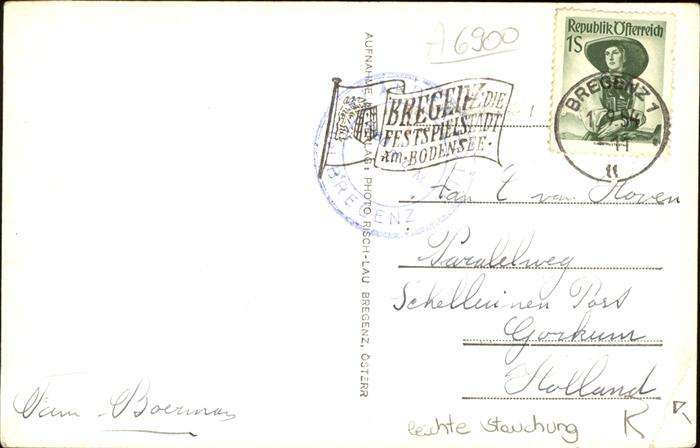 A6900
Republik Österreich
1S
BREGENZ 1
11
tt
BREGENZ DIE
FESTSPIELSTADT
AM-BODENSEE·
BREGENZ
AUFNAHME VERLAG: PHOTO RISCH-LAU BREGENZ, ÖSTERR
Aan E van Hoven
Paralelweg
Schelluinen Post
Gorkum
Holland
Fam Boerman
leichte Stauchung
K